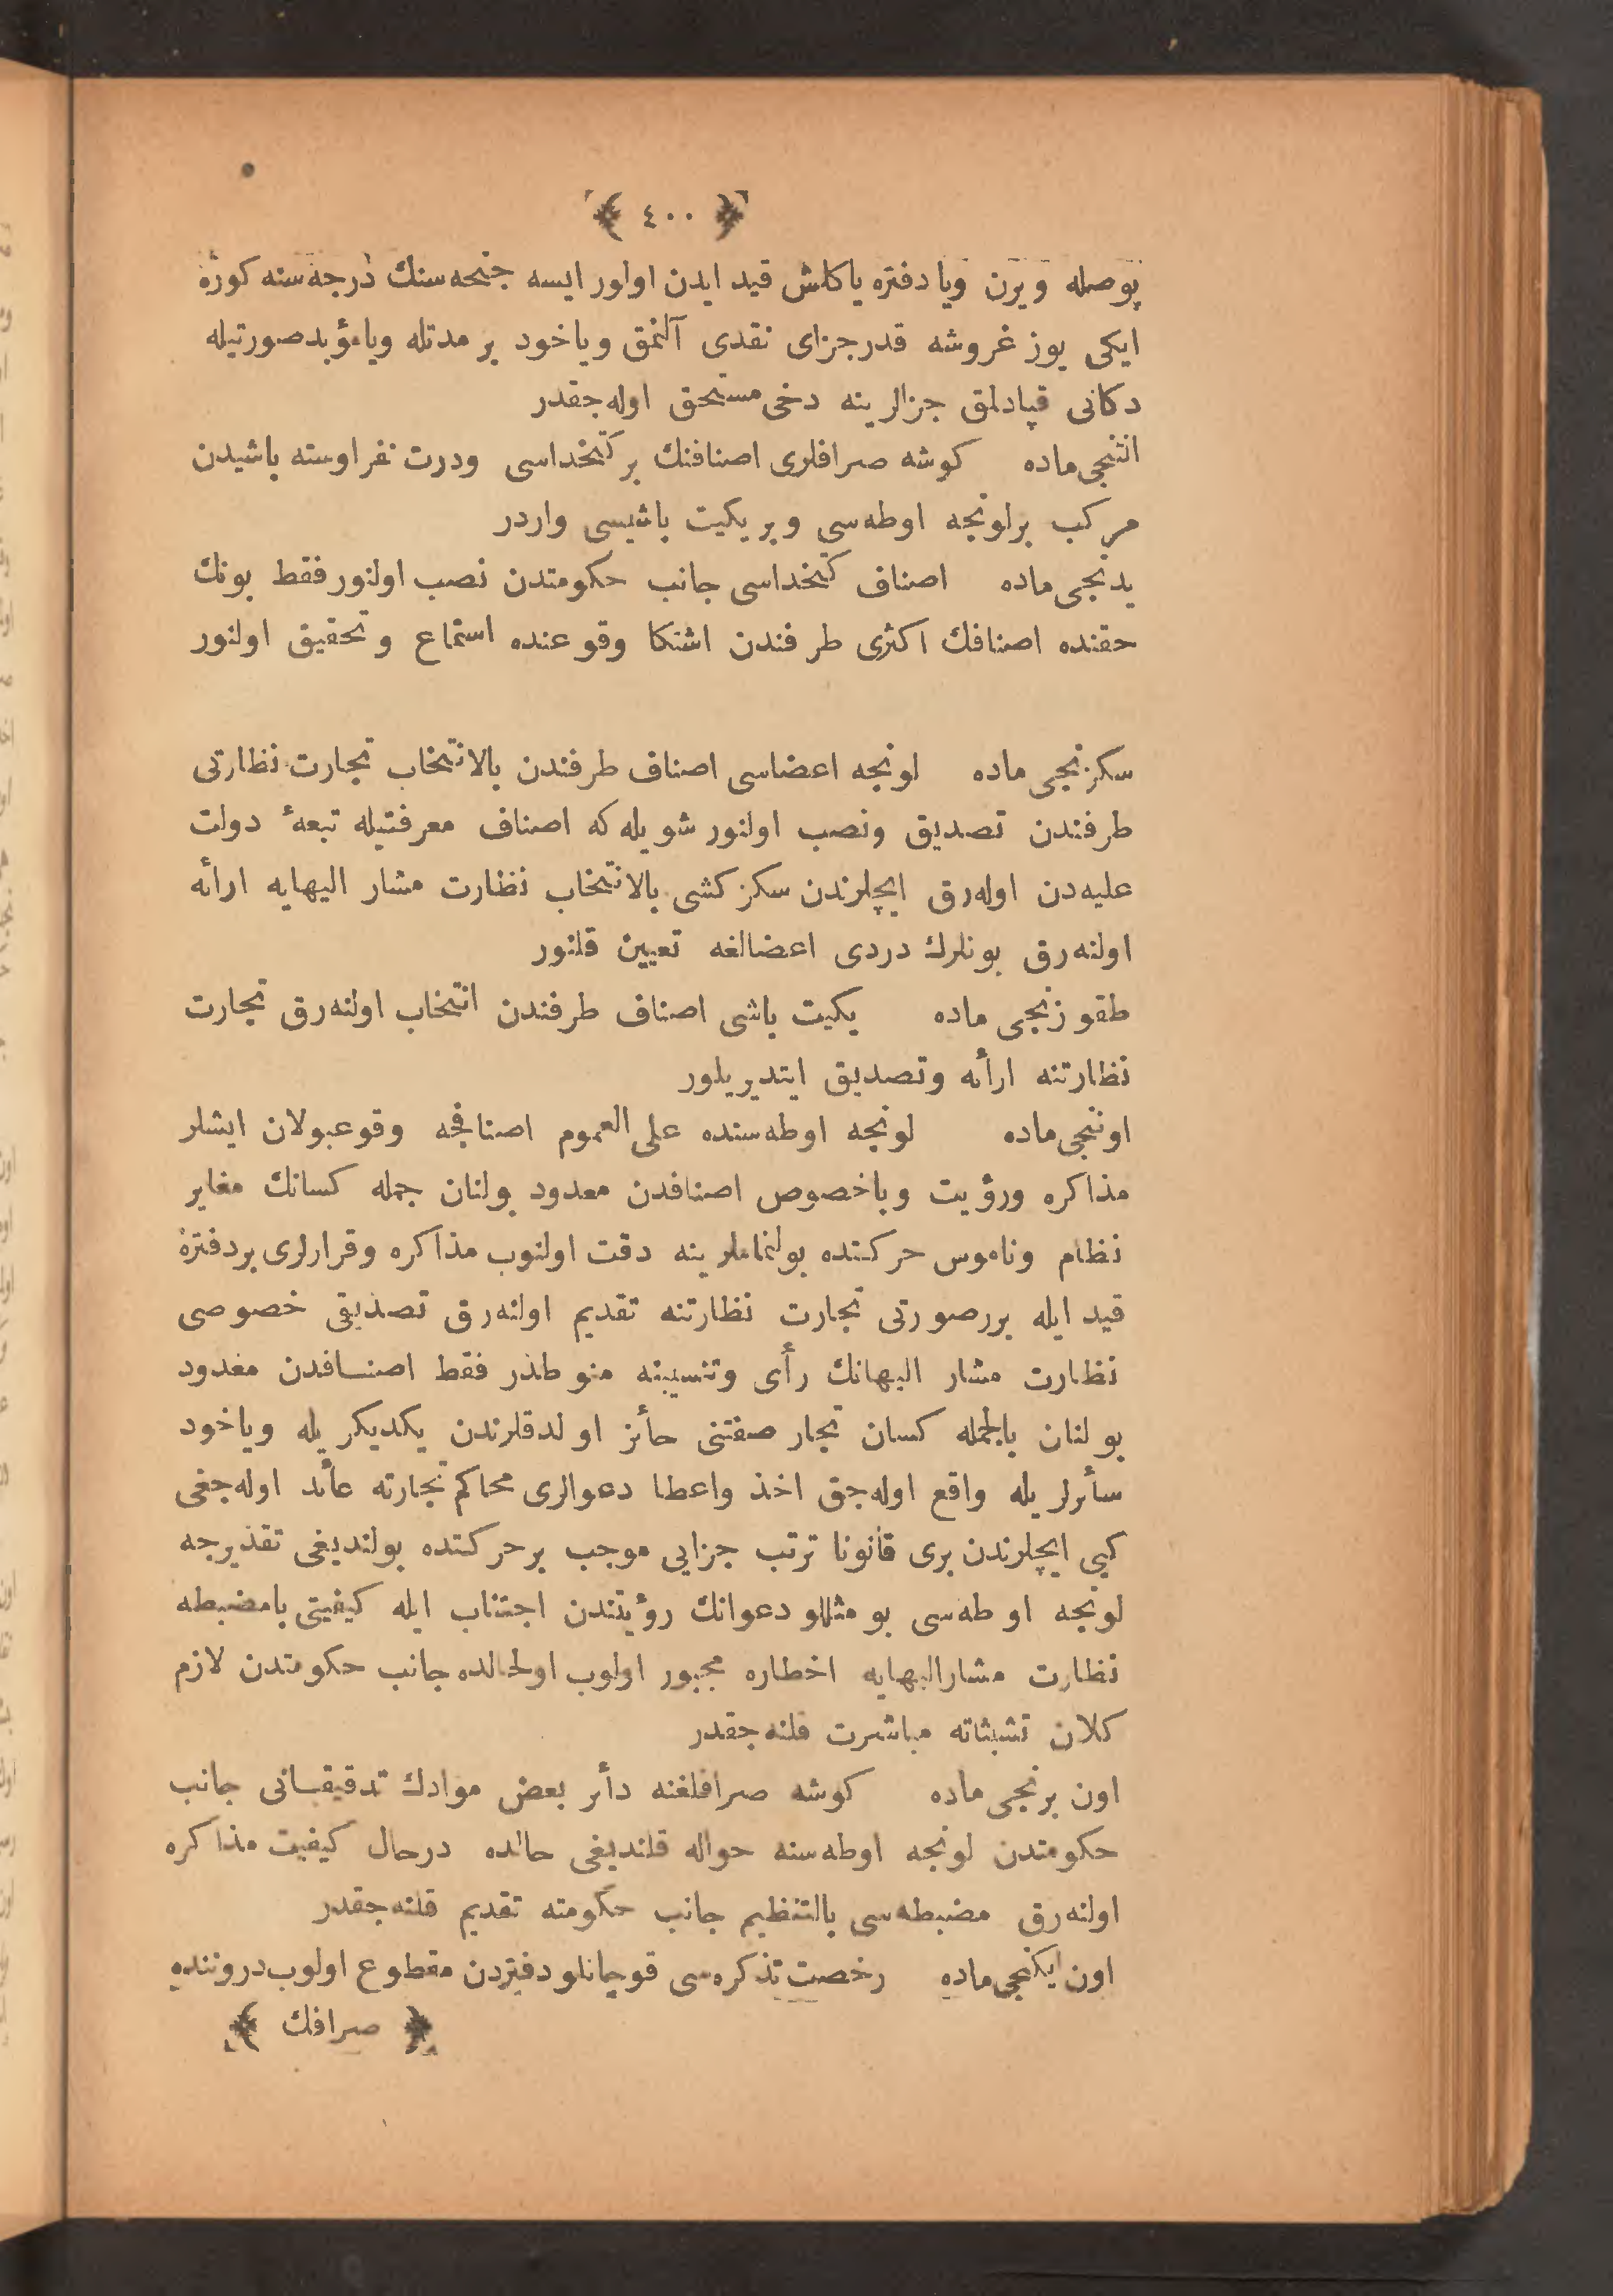 ﴿ ٤٠٠ ﴾
پوصله ويرن ويا دفتره ياكلش قيد ايدن اولور ايسه جنحه‌سنك درجه‌سنه كوره
ايكى يوز غروشه قدر جزاى نقدى آلنمق وياخود بر مدتله ويا مؤبد صورتيله
دكانى قپادلمق جزالرينه دخى مستحق اوله‌جقدر
التنجى ماده كوشه صرافلرى اصنافنك بر كتخداسى ودرت نفر اوسته باشيدن
مركب بر لونجه اوطه‌سى وبر يكيت باشيسى واردر
يدنجى ماده اصناف كتخداسى جانب حكومتدن نصب اولنور فقط بونك
حقنده اصنافك اكثرى طرفندن اشتكا وقوعنده استماع وتحقيق اولنور
سكزنجى ماده لونجه اعضاسى اصناف طرفندن بالانتخاب تجارت نظارتى
طرفندن تصديق ونصب اولنور شويله كه اصناف معرفتيله تبعهٔ دولت
عليه‌دن اوله‌رق ايچلرندن سكز كشى بالانتخاب نظارت مشار اليهايه ارائه
اولنه‌رق بونلرك دردى اعضالغه تعيين قلنور
طقوزنجى ماده يكيت باشى اصناف طرفندن انتخاب اولنه‌رق تجارت
نظارتنه ارائه وتصديق ايتديريلور
اوننجى ماده لونجه اوطه‌سنده على العموم اصنافجه وقوعبولان ايشلر
مذاكره ورؤيت وباخصوص اصنافدن معدود بولنان جمله كسانك مغاير
نظام وناموس حركتده بولنماملرينه دقت اولنوب مذاكره وقرارلرى بر دفتره
قيد ايله بررصورتى تجارت نظارتنه تقديم اولنه‌رق تصديقى خصوصى
نظارت مشار اليهانك رأى وتنسيبنه منوطدر فقط اصنافدن معدود
بولنان بالجمله كسان تجار صفتنى حائز اولدقلرندن يكديكريله وياخود
سائرلريله واقع اوله‌جق اخذ واعطا دعوالرى محاكم تجارته عائد اوله‌جغى
كبى ايچلرندن برى قانونا ترتب جزايى موجب بر حركتده بولنديغى تقديرجه
لونجه اوطه‌سى بو مثللو دعوانك رؤيتندن اجتناب ايله كيفيتى بامضبطه
نظارت مشاراليهايه اخطاره مجبور اولوب اولحالده جانب حكومتدن لازم
كلان تشبثاته مباشرت قلنه‌جقدر
اون برنجى ماده كوشه صرافلغنه دائر بعض موادك تدقيقاتى جانب
حكومتدن لونجه اوطه‌سنه حواله قلنديغى حالده درحال كيفيت مذاكره
اولنه‌رق مضبطه‌سى بالتنظيم جانب حكومته تقديم قلنه‌جقدر
اون ايكنجى ماده رخصت تذكره‌سى قوچانلو دفتردن مقطوع اولوب دروننده
﴿ صرافك ﴾